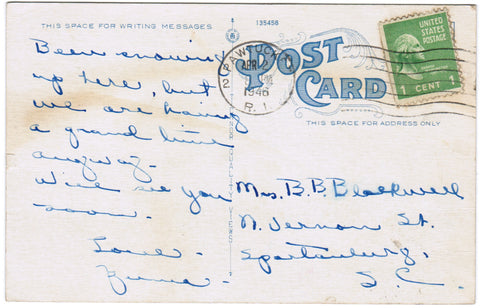 THIS SPACE FOR WRITING MESSAGES
135458
POST CARD
THIS SPACE FOR ADDRESS ONLY
PAWTUCKET
APR
1946
R.I.
UNITED
STATES
POSTAGE
1 CENT 1
Been snowing
up here, but
we are having
a grand time
anyway-
Will see you
soon.
Love-
Mrs. B.B. Blackwell
N. Vernon St.
Spartanburg,
S.C.